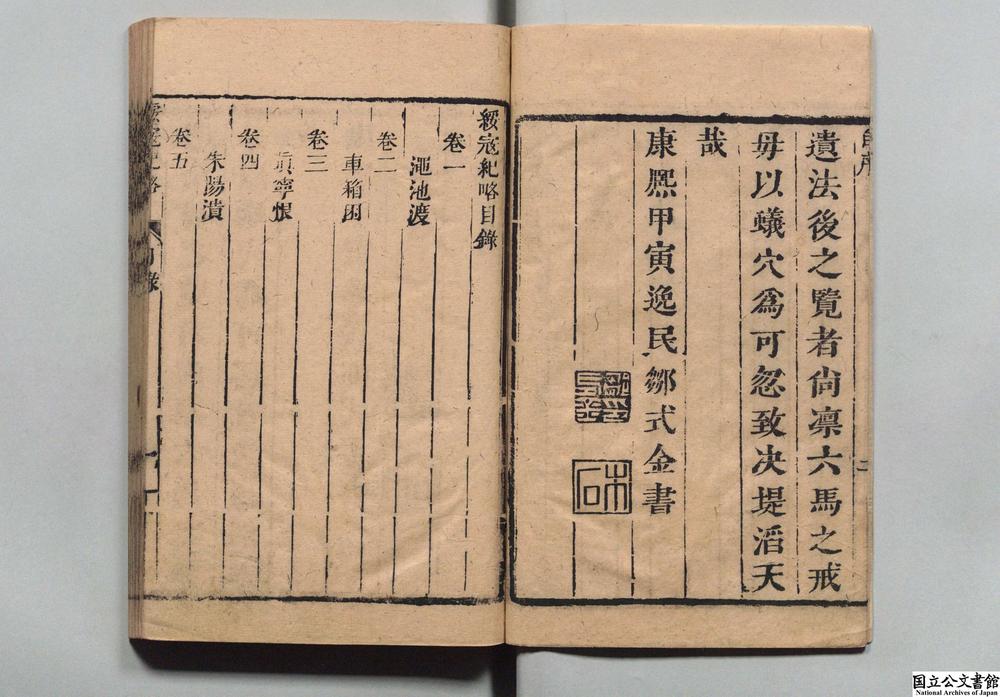 遺法後之覽者尙凛六馬之戒
毋以蟻穴爲可忽致决堤滔天
哉
康熙甲寅逸民鄒式金書
木石
綏寇紀略目錄
卷一
澠池渡
卷二
車箱困
卷三
眞寧恨
卷四
朱陽潰
卷五
国立公文書館
National Archives of Japan